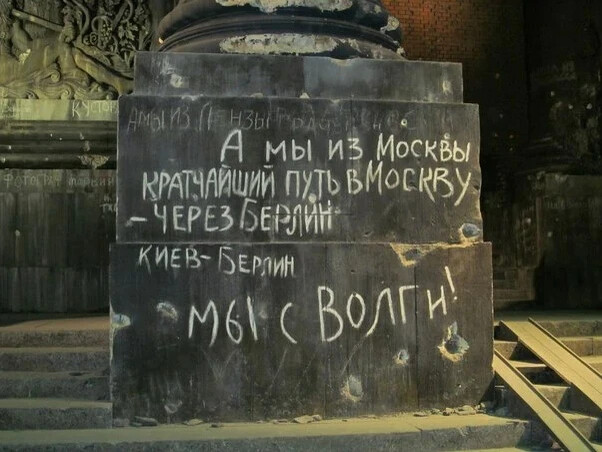 А МЫ ИЗ ПЕНЗЫ
А МЫ ИЗ МОСКВЫ
КРАТЧАЙШИЙ ПУТЬ В МОСКВУ
– ЧЕРЕЗ БЕРЛИН
КИЕВ-БЕРЛИН
МЫ С ВОЛГИ!